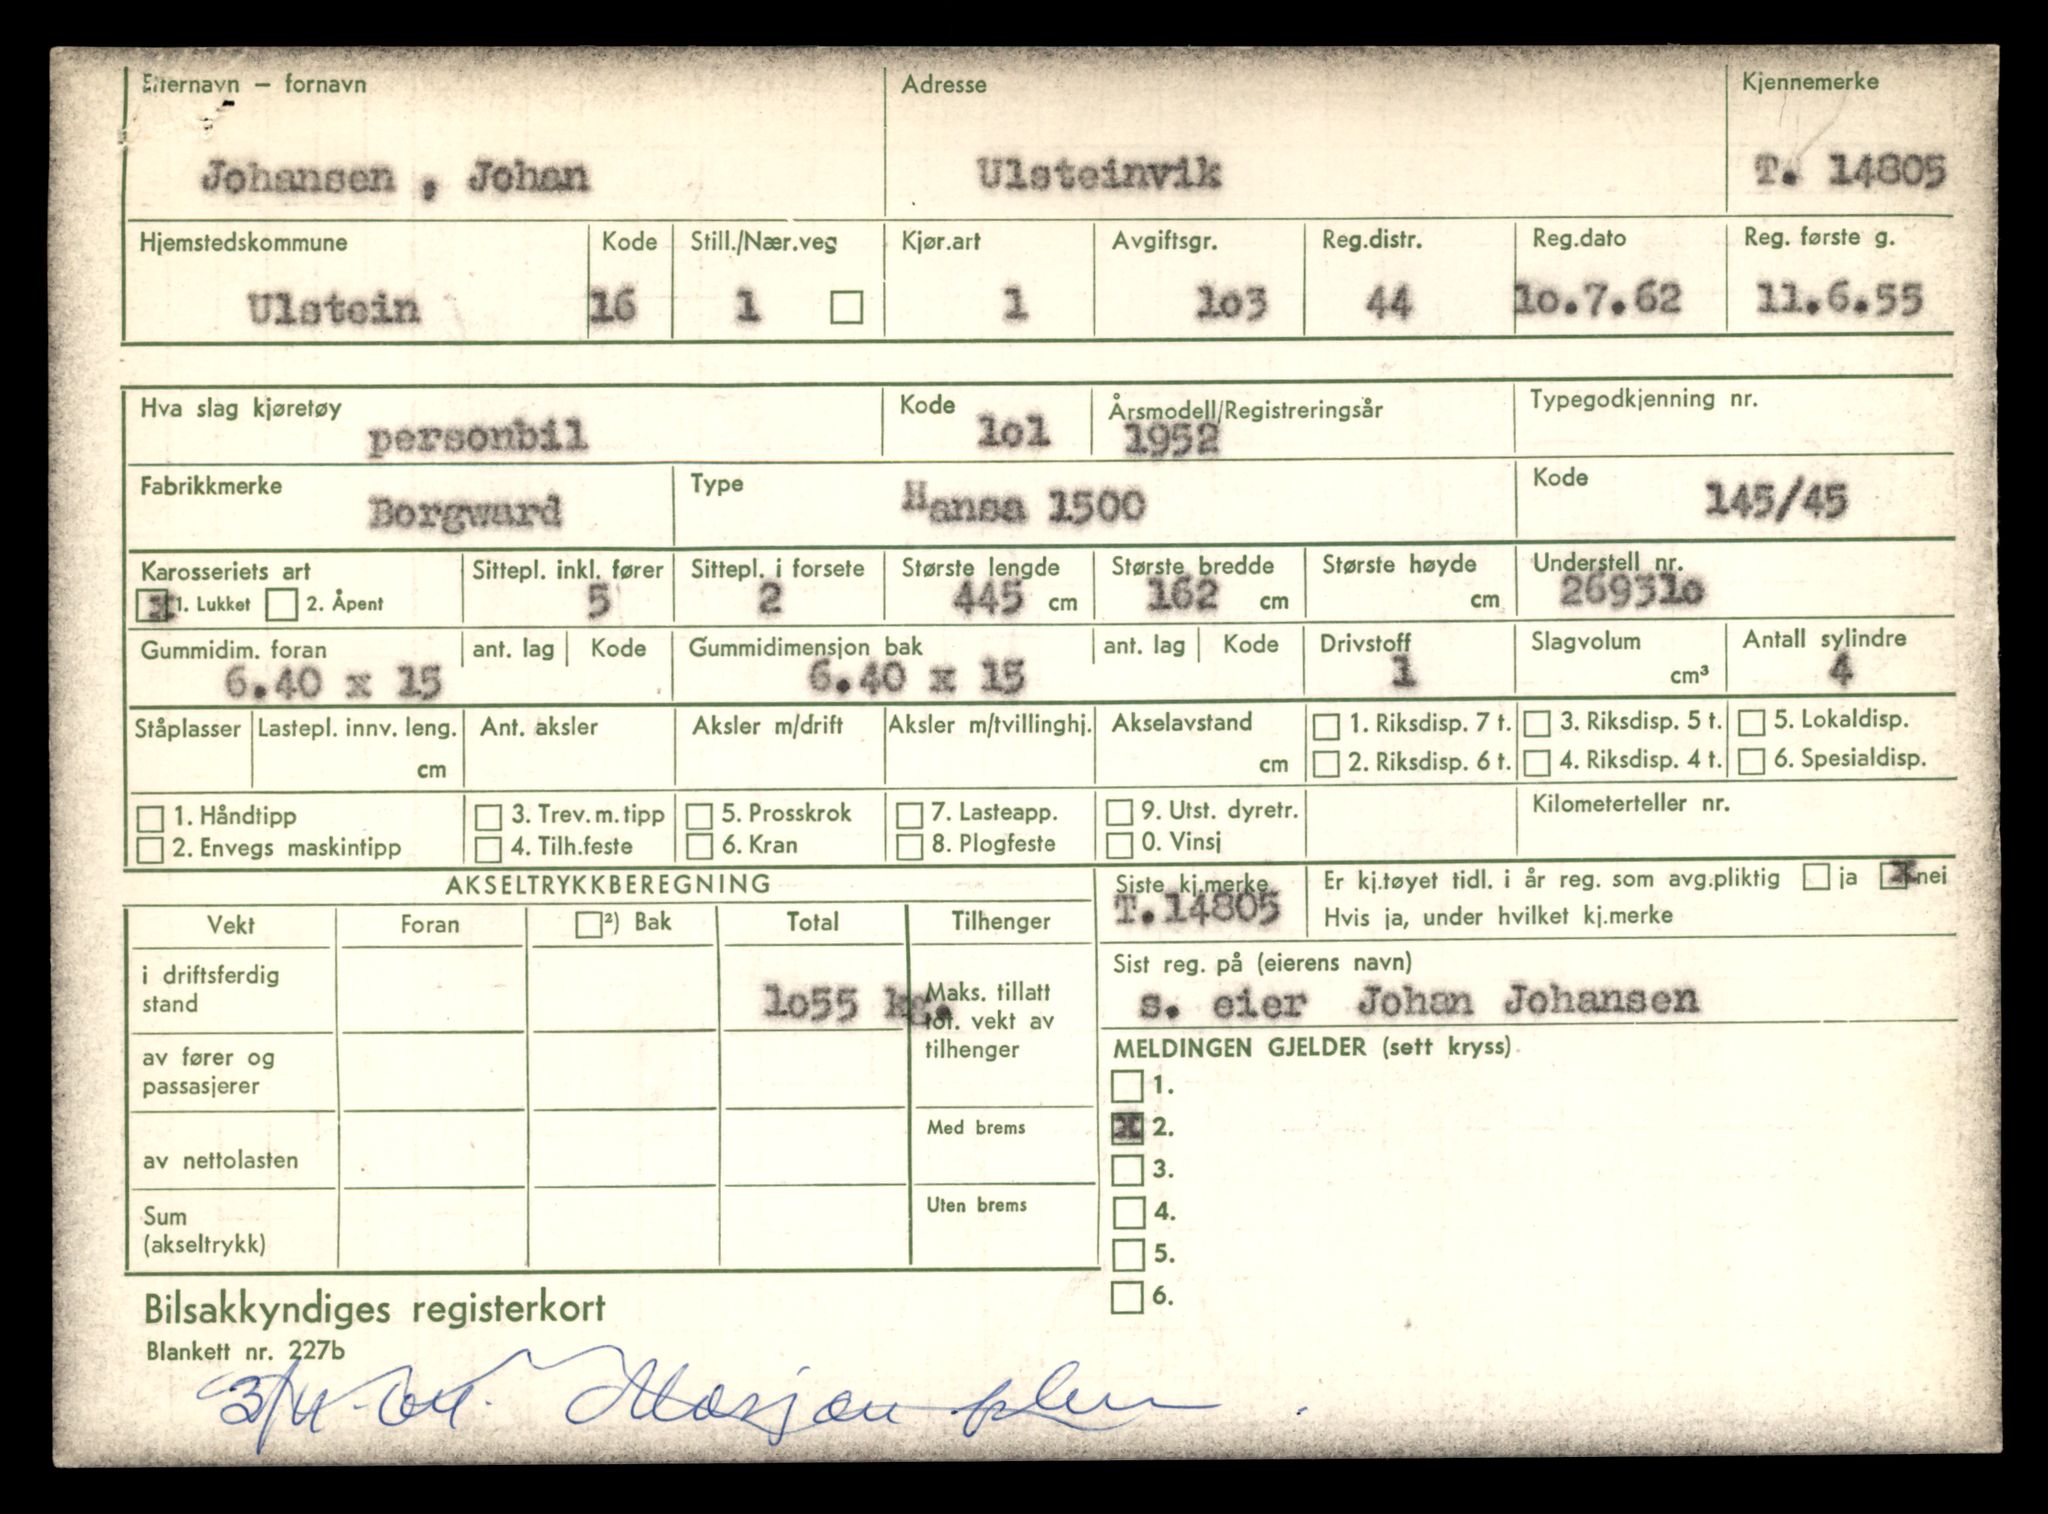 Etternavn – fornavn Adresse Kjennemerke
Johansen , Johan Ulsteinvik T. 14805
Hjemstedskommune Kode Still./Nær.veg Kjør.art Avgiftsgr. Reg.distr. Reg.dato Reg. første g.
Ulstein 16 1 1 lo3 44 lo.7.62 11.6.55
Hva slag kjøretøy Kode Årsmodell/Registreringsår Typegodkjenning nr.
personbil lol 1952
Fabrikkmerke Type Kode
Borgward Hansa 1500 145/45
Karosseriets art Sittepl. inkl. fører Sittepl. i forsete Største lengde Største bredde Største høyde Understell nr.
x 1. Lukket 2. Åpent 5 2 445 cm 162 cm cm 26931o
Gummidim. foran ant. lag Kode Gummidimensjon bak ant. lag Kode Drivstoff Slagvolum Antall sylindre
6.40 x 15 6.40 x 15 1 cm³ 4
Ståplasser Lastepl. innv. leng. Ant. aksler Aksler m/drift Aksler m/tvillinghj. Akselavstand 1. Riksdisp. 7 t. 3. Riksdisp. 5 t. 5. Lokaldisp.
cm cm 2. Riksdisp. 6 t. 4. Riksdisp. 4 t. 6. Spesialdisp.
1. Håndtipp 3. Trev. m. tipp 5. Prosskrok 7. Lasteapp. 9. Utst. dyretr. Kilometerteller nr.
2. Envegs maskintipp 4. Tilh.feste 6. Kran 8. Plogfeste 0. Vinsj
AKSELTRYKKBEREGNING Siste kj.merke Er kj.tøyet tidl. i år reg. som avg.pliktig ja x nei
T.14805 Hvis ja, under hvilket kj.merke
Vekt Foran ²) Bak Total Tilhenger
Sist reg. på (eierens navn)
i driftsferdig stand lo55 kg. Maks. tillatt tot. vekt av tilhenger
s. eier Johan Johansen
MELDINGEN GJELDER (sett kryss)
av fører og passasjerer
1.
Med brems x 2.
av nettolasten 3.
Uten brems 4.
Sum (akseltrykk) 5.
6.
Bilsakkyndiges registerkort
Blankett nr. 227b